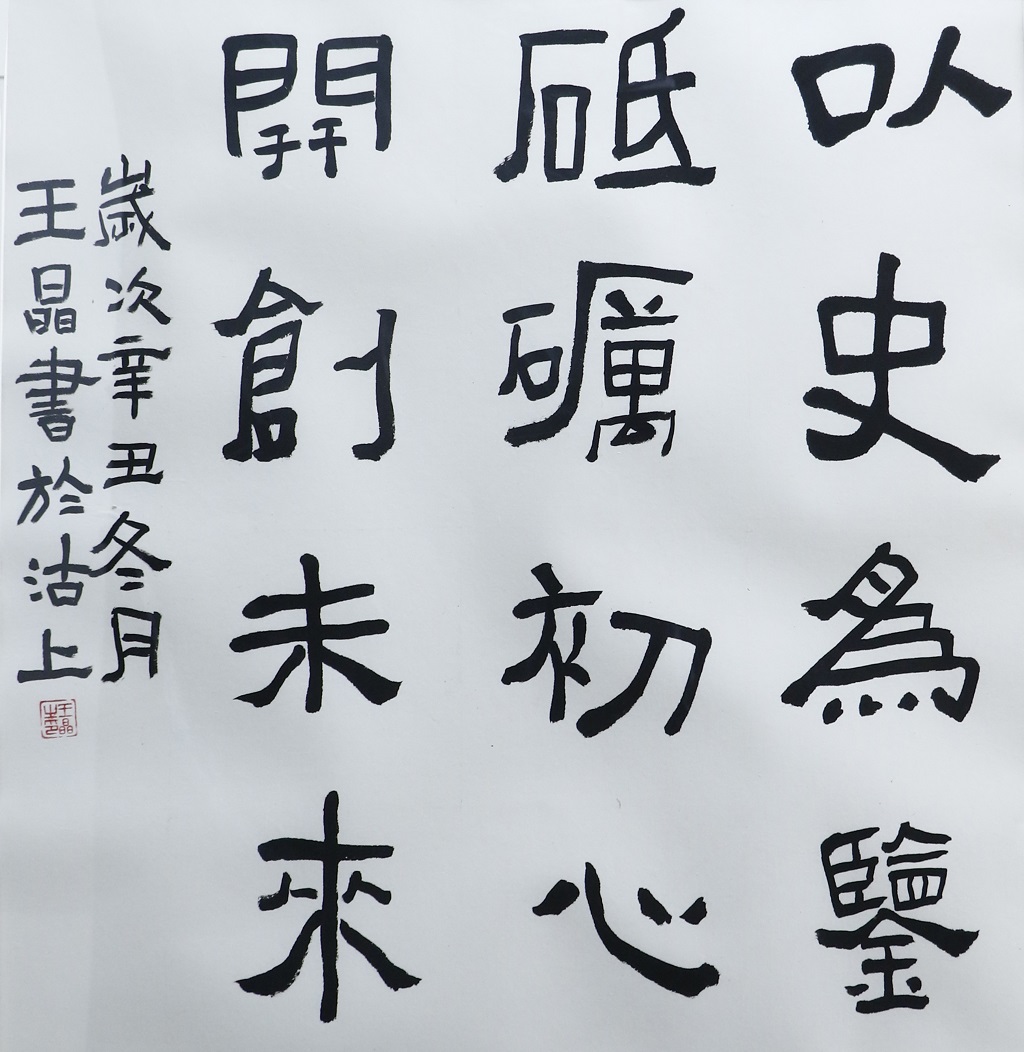 以史為鑒
砥礪初心
開創未來
歲次辛丑冬月
王晶書於沽上